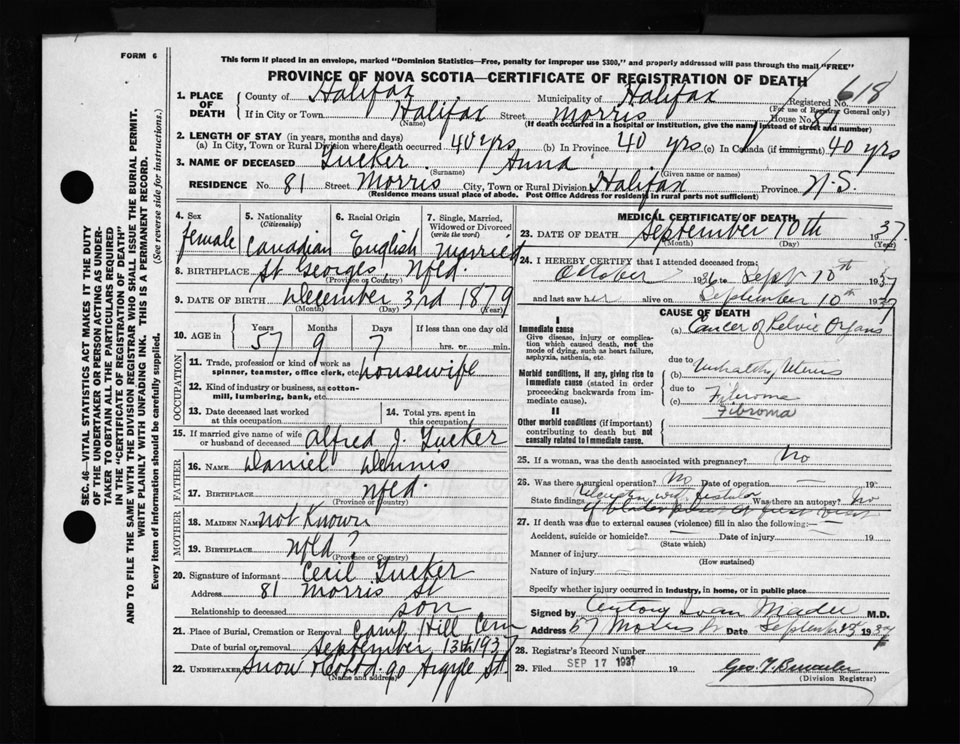 FORM 6
This form if placed in an envelope, marked "Dominion Statistics—Free, penalty for improper use $300," and properly addressed will pass through the mail "FREE"
PROVINCE OF NOVA SCOTIA—CERTIFICATE OF REGISTRATION OF DEATH
618
1. PLACE OF DEATH County of Halifax Municipality of Halifax Registered No.
(For use of Registrar General only)
If in City or Town Halifax Street Morris House No. 81
(Name) (If death occurred in a hospital or institution, give the name instead of street and number)
2. LENGTH OF STAY (in years, months and days)
(a) In City, Town or Rural Division where death occurred 40 yrs (b) In Province 40 yrs (c) In Canada (if immigrant) 40 yrs
3. NAME OF DECEASED Tucker Anna
(Surname) (Given name or names)
RESIDENCE No. 81 Street Morris City, Town or Rural Division Halifax Province N.S.
(Residence means usual place of abode. Post Office Address for residents in rural parts not sufficient)
4. Sex female
5. Nationality (Citizenship) Canadian
6. Racial Origin English
7. Single, Married, Widowed or Divorced (write the word) Married
8. BIRTHPLACE St Georges, Nfld.
(Province or Country)
9. DATE OF BIRTH December 3rd 1879
(Month) (Day) (Year)
10. AGE in Years 57 Months 9 Days 7 If less than one day old hrs. or min.
OCCUPATION
11. Trade, profession or kind of work as spinner, teamster, office clerk, etc. housewife
12. Kind of industry or business, as cotton-mill, lumbering, bank, etc.
13. Date deceased last worked at this occupation
14. Total yrs. spent in this occupation
15. If married give name of wife or husband of deceased Alfred J. Tucker
FATHER
16. NAME Daniel Dennis
17. BIRTHPLACE Nfld.
(Province or Country)
MOTHER
18. MAIDEN NAME not Known
19. BIRTHPLACE Nfld?
(Province or Country)
20. Signature of informant Cecil Tucker
Address 81 Morris St
Relationship to deceased son
21. Place of Burial, Cremation or Removal Camp Hill Cem
Date of burial or removal September 13th 1937
22. UNDERTAKER Snow & Co Ltd. 90 Argyle St.
(Name and address)
MEDICAL CERTIFICATE OF DEATH
23. DATE OF DEATH September 10th 1937
(Month) (Day) (Year)
24. I HEREBY CERTIFY that I attended deceased from:
October 1936 to Sept 10th 1937
and last saw her alive on September 10th 1937
CAUSE OF DEATH
I
Immediate cause
Give disease, injury or complication which caused death, not the mode of dying, such as heart failure, asphyxia, asthenia, etc.
(a) Cancer of Pelvic Organs
due to
Morbid conditions, if any, giving rise to immediate cause (stated in order proceeding backwards from immediate cause).
(b) Unhealthy Uterus
due to
(c) Fibroma
Fibroma
II
Other morbid conditions (if important) contributing to death but not causally related to immediate cause.
25. If a woman, was the death associated with pregnancy? No
26. Was there a surgical operation? No Date of operation 19
State findings Was there an autopsy? No
27. If death was due to external causes (violence) fill in also the following:
Accident, suicide or homicide? Date of injury 19
(State which)
Manner of injury
(How sustained)
Nature of injury
Specify whether injury occurred in Industry, in home, or in public place
Signed by Antony Ivan Mader M.D.
Address 57 Morris St Date September 1937
28. Registrar's Record Number
29. Filed SEP 17 1937 19
(Division Registrar)
SEC. 46—VITAL STATISTICS ACT MAKES IT THE DUTY
OF THE UNDERTAKER OR PERSON ACTING AS UNDER-
TAKER TO OBTAIN ALL THE PARTICULARS REQUIRED
IN THE "CERTIFICATE OF REGISTRATION OF DEATH"
AND TO FILE THE SAME WITH THE DIVISION REGISTRAR WHO SHALL ISSUE THE BURIAL PERMIT.
WRITE PLAINLY WITH UNFADING INK. THIS IS A PERMANENT RECORD.
Every item of information should be carefully supplied. (See reverse side for instructions.)